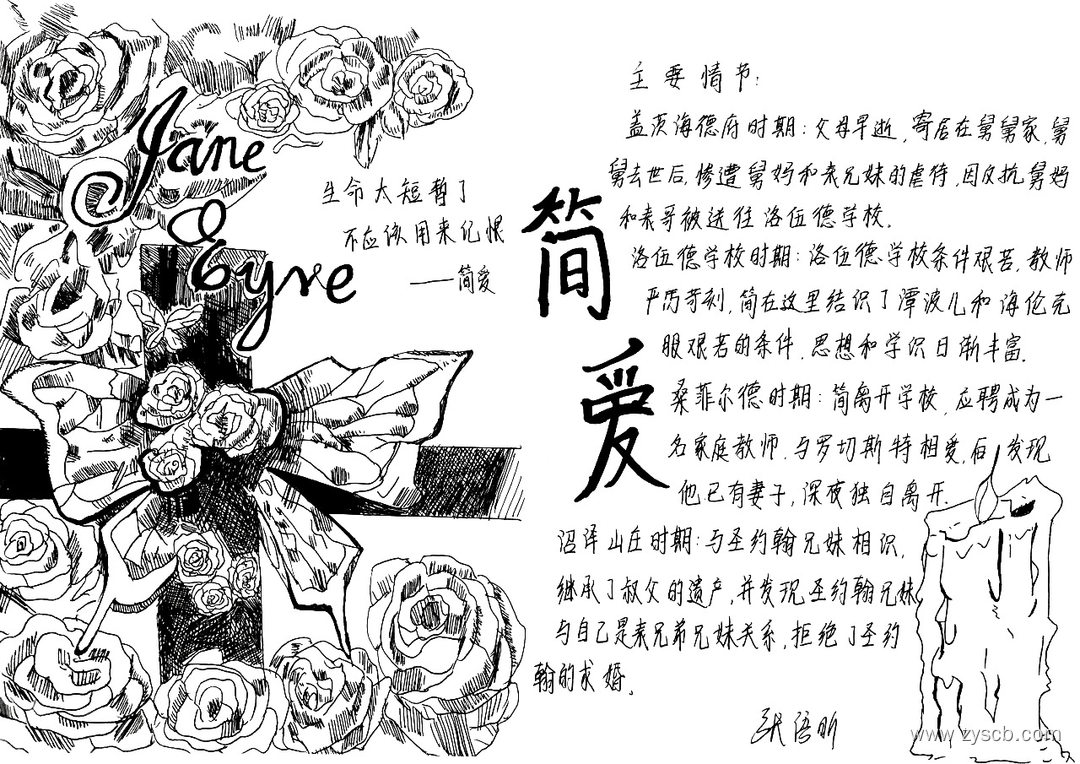 Jane
Eyre
生命太短暂了
不应该用来记恨
——简爱
简爱
主要情节:
盖茨海德府时期:父母早逝,寄居在舅舅家,舅
舅去世后,惨遭舅妈和表兄妹的虐待,因反抗舅妈
和表哥被送往洛伍德学校.
洛伍德学校时期:洛伍德学校条件艰苦,教师
严厉苛刻,简在这里结识了潭波儿和海伦克
服艰苦的条件,思想和学识日渐丰富.
桑菲尔德时期:简离开学校,应聘成为一
名家庭教师,与罗切斯特相爱,后发现
他已有妻子,深夜独自离开.
沼泽山庄时期:与圣约翰兄妹相识,
继承了叔父的遗产,并发现圣约翰兄妹
与自己是表兄弟兄妹关系,拒绝了圣约
翰的求婚。
www.zyscb.com